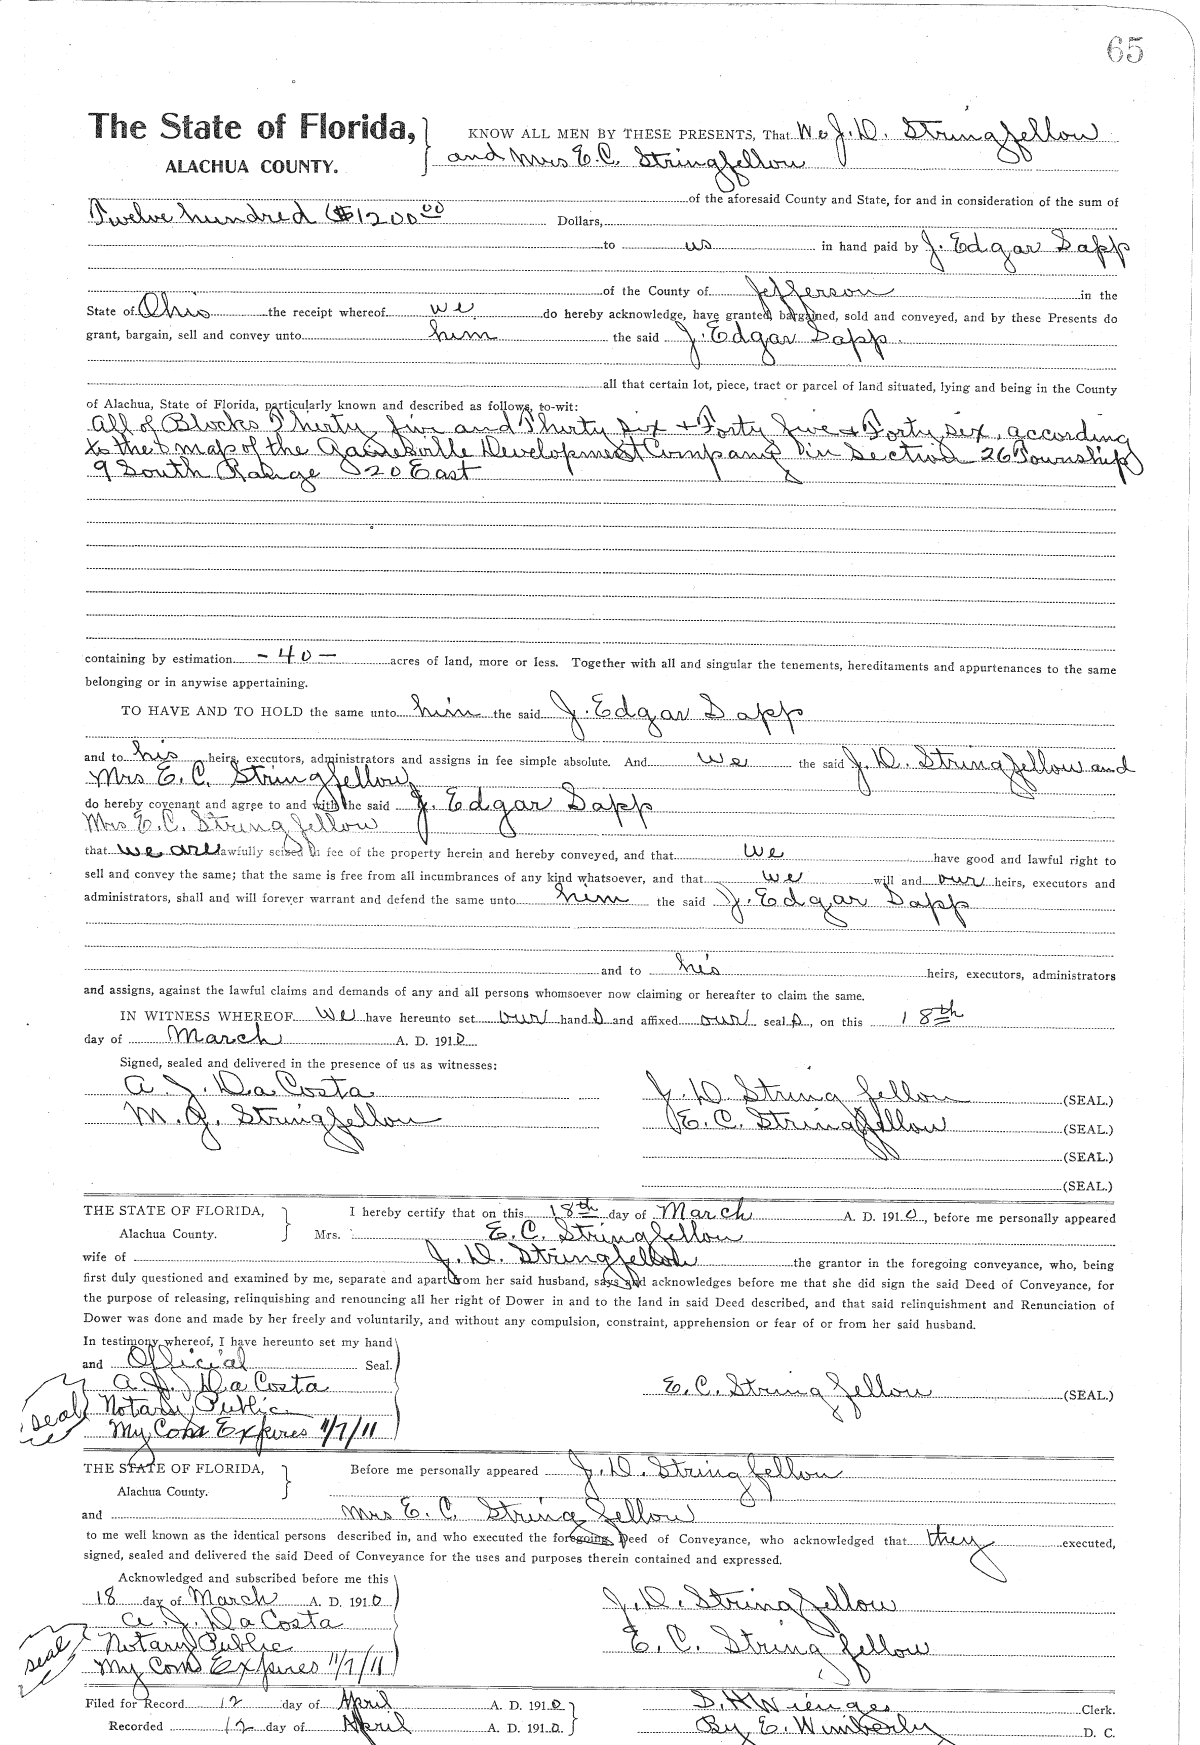 65
The State of Florida, KNOW ALL MEN BY THESE PRESENTS, That We J. D. Stringfellow
ALACHUA COUNTY. and Mrs E. C. Stringfellow
of the aforesaid County and State, for and in consideration of the sum of
Twelve hundred ($1200 00 Dollars,
to us in hand paid by J. Edgar Sapp
of the County of Jefferson in the
State of Ohio the receipt whereof we do hereby acknowledge, have granted, bargained, sold and conveyed, and by these Presents do
grant, bargain, sell and convey unto him the said J. Edgar Sapp
all that certain lot, piece, tract or parcel of land situated, lying and being in the County
of Alachua, State of Florida, particularly known and described as follows, to-wit:
All of Blocks Thirty five and Thirty six + Forty five + Forty six, according
to the map of the Gainesville Development Company in Section 26 Township
9 South Range 20 East
containing by estimation - 40 - acres of land, more or less. Together with all and singular the tenements, hereditaments and appurtenances to the same
belonging or in anywise appertaining.
TO HAVE AND TO HOLD the same unto him the said J. Edgar Sapp
and to his heirs, executors, administrators and assigns in fee simple absolute. And we the said J. D. Stringfellow and
Mrs E. C. Stringfellow
do hereby covenant and agree to and with the said J. Edgar Sapp
Mrs E. C. Stringfellow
that we are lawfully seized in fee of the property herein and hereby conveyed, and that we have good and lawful right to
sell and convey the same; that the same is free from all incumbrances of any kind whatsoever, and that we will and our heirs, executors and
administrators, shall and will forever warrant and defend the same unto him the said J. Edgar Sapp
and to his heirs, executors, administrators
and assigns, against the lawful claims and demands of any and all persons whomsoever now claiming or hereafter to claim the same.
IN WITNESS WHEREOF we have hereunto set our hand s and affixed our seal s, on this 18th
day of March A. D. 1910
Signed, sealed and delivered in the presence of us as witnesses:
A. J. DaCosta J. D Stringfellow (SEAL.)
M. J. Stringfellow E. C. Stringfellow (SEAL.)
(SEAL.)
(SEAL.)
THE STATE OF FLORIDA, I hereby certify that on this 18th day of March A. D. 1910, before me personally appeared
Alachua County. Mrs. E. C. Stringfellow
wife of J. D. Stringfellow the grantor in the foregoing conveyance, who, being
first duly questioned and examined by me, separate and apart from her said husband, says and acknowledges before me that she did sign the said Deed of Conveyance, for
the purpose of releasing, relinquishing and renouncing all her right of Dower in and to the land in said Deed described, and that said relinquishment and Renunciation of
Dower was done and made by her freely and voluntarily, and without any compulsion, constraint, apprehension or fear of or from her said husband.
In testimony whereof, I have hereunto set my hand
and Official Seal.
A. J. DaCosta E. C. Stringfellow (SEAL.)
seal Notary Public
My Com Expires 11/7/11
THE STATE OF FLORIDA, Before me personally appeared J. D. Stringfellow
Alachua County.
and Mrs E. C. Stringfellow
to me well known as the identical persons described in, and who executed the foregoing Deed of Conveyance, who acknowledged that they executed,
signed, sealed and delivered the said Deed of Conveyance for the uses and purposes therein contained and expressed.
Acknowledged and subscribed before me this
18 day of March A. D. 1910 J. D. Stringfellow
A. J. DaCosta
seal Notary Public E. C. Stringfellow
My Com Expires 11/7/11
Filed for Record 12 day of April A. D. 1910 S. H Wienges Clerk.
Recorded 12 day of April A. D. 1910. By E. Wimberly D. C.